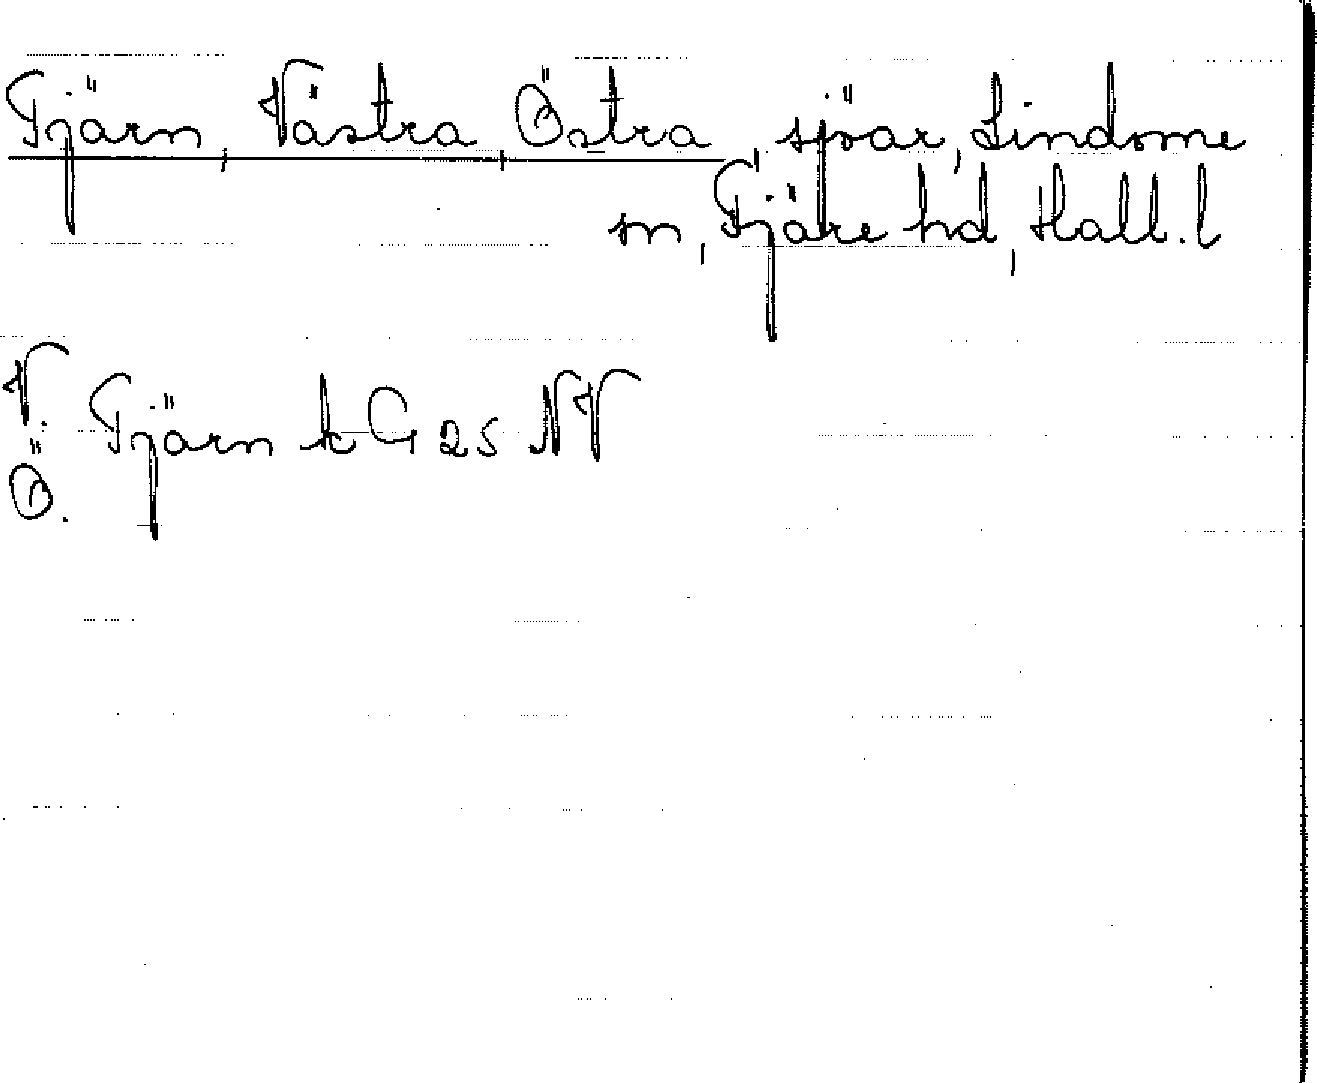 Tjärn Västra Östra, sjöar, Lindome
sn, Fjäre hd, Hall. l
V.
Tjärn k G 25 NV
Ö.